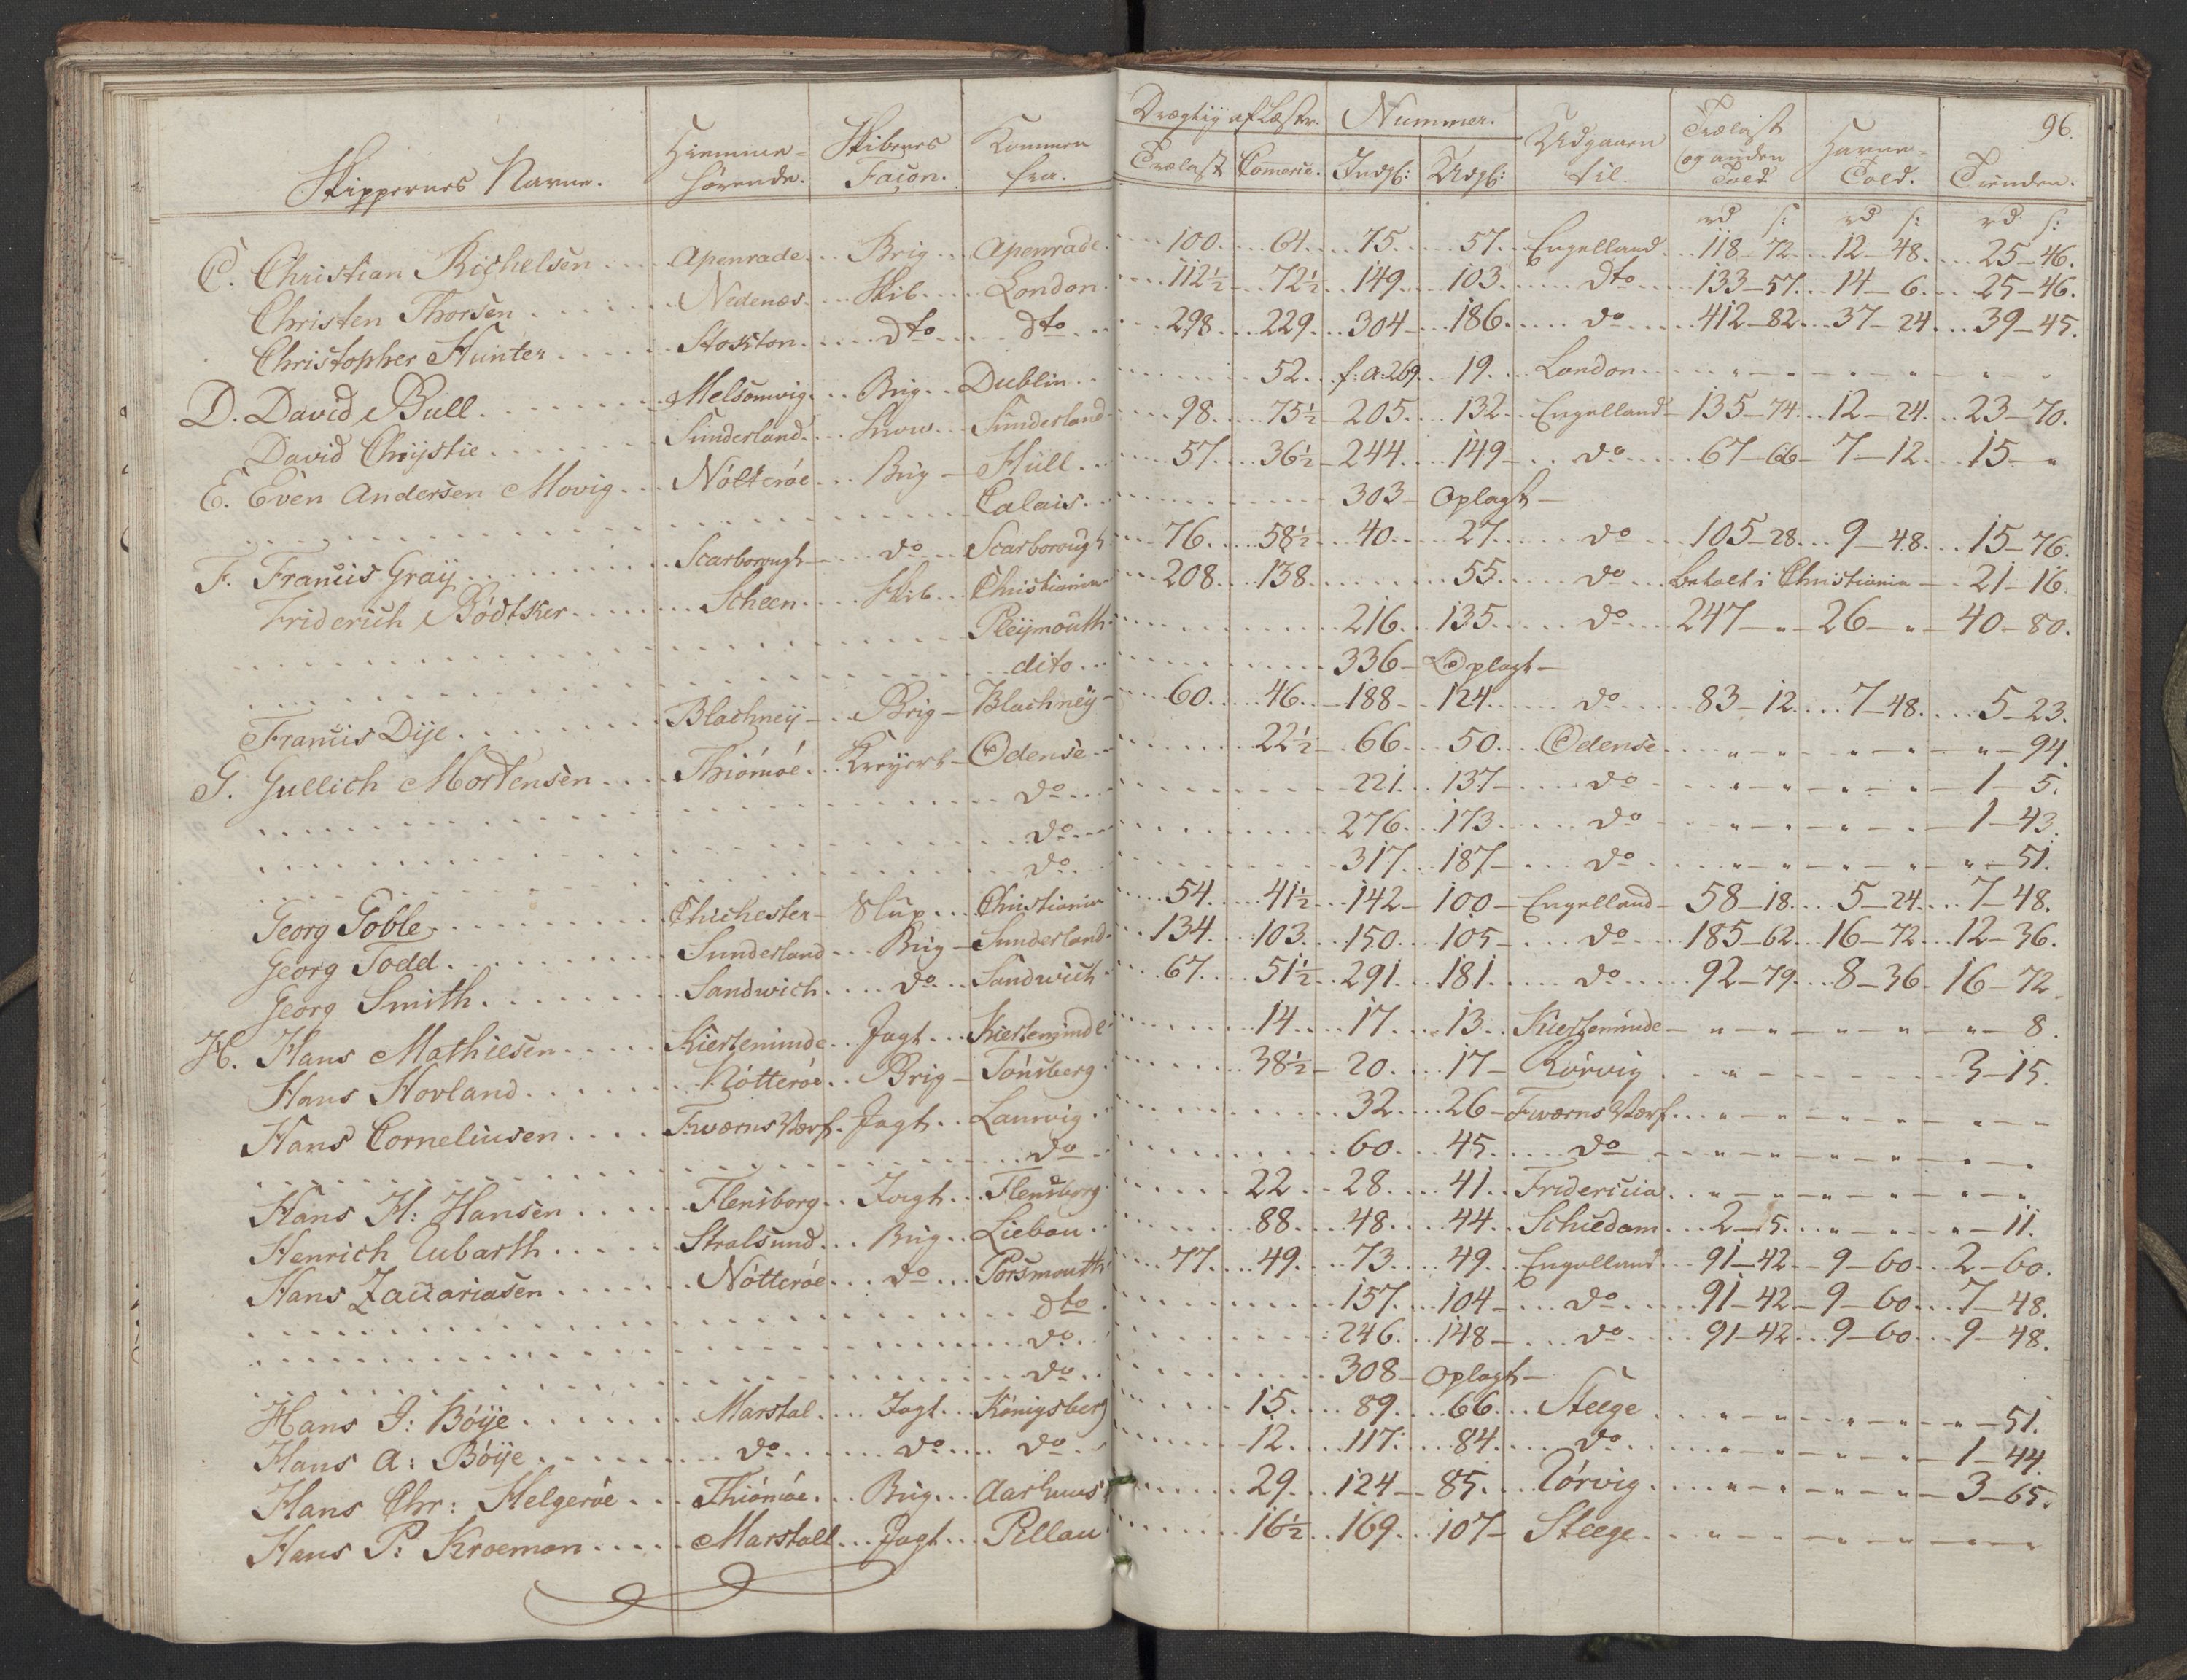 96.
Skippernes Navne. Hiemmehørende. Skibenes Façon. Kommen fra. Drægtig af Læster. Trælast Comerce. Nummer. Indg: Udg: Udgaaen til Trælast og anden Told. Havne-Told. Tienden.
rd s: rd s: rd s:
C. Christian Richelsen Apenrade Brig Apenrade 100 64 75 57 Engelland 118-72 12-48 25-46.
Christen Thorsen Nedenæs Skib London 112½ 72½ 149 103 dto 133-57 14-6 25-46.
Christopher Hunter Stokton dto dto 298 229 304 186 do 412-82 37-24 39-45.
D. David Bull Melsomvig Brig Dublin 52 f:a:269 19 London
David Chrijstie Sunderland Snow Sunderland 98 75½ 205 132 Engelland 135-74 12-24 23-70.
E. Even Andersen Movig Nótteróe Brig Hull 57 36½ 244 149 do 67-66 7-12 15-"
Calais 303 Oplagt
F. Francis Graij Scarborough do Scarborough 76 58½ 40 27 do 105-28 9-48 15-76.
Friderich Bódtker Scheen Skib Christiania 208 138 55 do betalt i Christiania 21-16.
Pleijmouth 216 135 do 247-" 26-" 40-80.
dito 336 Oplagt
Francis Dije Blachneij Brig Blachneij 60 46 188 124 do 83-12 7-48 5-23.
G. Gullich Mortensen Thiómóe Kreyert Odense 22½ 66 50 Odense "-94.
do 221 137 do 1-5.
do 276 173 do 1-43.
do 317 187 do "-51.
Georg Goble Chichester Slup Christiania 54 41½ 142 100 Engelland 58-18 5-24 7-48.
Georg Todd Sunderland Brig Sunderland 134 103 150 105 do 185-62 16-72 12-36.
Georg Smith Sandwich do Sandwich 67 51½ 291 181 do 92-79 8-36 16-72.
H. Hans Mathiesen Kierteminde Jagt Kierteminde 14 17 13 Kierteminde "-8.
Hans Hovland Nótteróe Brig Tónsberg 38½ 20 17 Rórvig 3-15.
Hans Corneliusen Fværns Værf Jagt Laurvig 32 26 Fværns Værf
do 60 45 do
Hans H: Hansen Flensborg Jagt Flensborg 22 28 41 Fridericia
Henrich Lubarth Stralsund Brig Liebau 88 48 44 Schiedam 2-15 "-11.
Hans Zacariasen Nótteróe do Porsmouth 77 49 73 49 Engelland 91-42 9-60 2-60.
dto 157 104 do 91-42 9-60 7-48.
do 246 148 do 91-42 9-60 9-48.
do 308 Oplagt
Hans J: Bóije Marstal Jagt Königsberg 15 89 66 Steege "-51.
Hans A: Bóije do do do 12 117 84 do 1-44.
Hans Chr: Helgeróe Thiómóe Brig Aarhuus 29 124 85 Rórvig 3-65.
Hans P: Kroeman Marstall Jagt Pillau 16½ 169 107 Steege